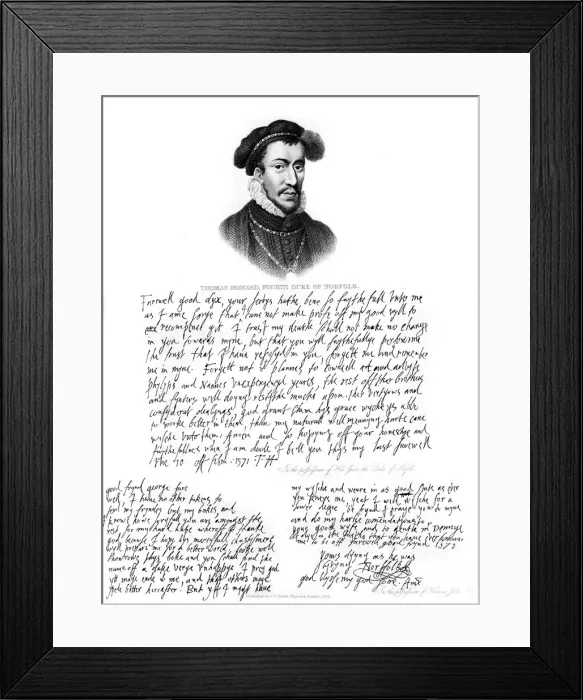 THOMAS HOWARD, FOURTH DUKE OF NORFOLK.
Farewell good dyx, your servys hathe bene so faythefull unto me
as I ame sorye that I can not make profe off my good wyll to
recompence yt I trust my deathe shall not make no change
in you towards myne, but that you wyll faythefullye performe
the trust that I have reposyd in you, forgett me and remember
me in myne. Forgett not to counsell and advyse
Phylyps and Nannes unexperyencyd years, the rest off ther brothers
and systers well doyng restythe muche upon ther vertyous and
consyderat dealyngs, god grant them hys grace wyche ys able
to worke better in them, than my natural well meanyng harte can
wyshe unto them Amen and so hopyng off your honestye and
faythefullnes when I ame deade I bell you thys my last farewell
the 10 off febr. 1571 T H
In the possession of His Grace the Duke of Norfolk
good frynd george
well, I have no other tokens to
send my fryndes but my bokes, and
I knowe howe you are amongst the
rest for my
god because I hope hys mercyfull chastysment
wyll prepare me for a better world loke well
thowrowe thys boke and you shall fynd the
name off a duke verye unhappye I pray god
yt maye ende in me, and that others maye
speede better hereafter. But yff I myght have
my wyshe and were in as good state as ever
you knewe me, yeat I wold wyshe for a
lower degre be a frynd I praye you to myne
and do my hartye comendations to
your good wyffe and to gentle
I dye in the faythe that you have ever knowen
me to be off farewell good frynd 1572
yowrs dyeng as he was
lyvyng Norfolk
god blysse my god
In the possession of